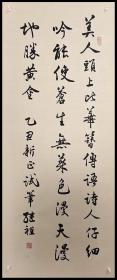 美人頭上比華簪傳語詩人仔細
吟能使蒼生無菜色漫天漫
地勝黃金 乙丑新正試筆 继祖